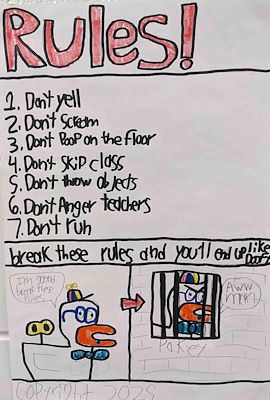 Rules!
1. Don't yell
2. Don't Scream
3. Don't Poop on the floor
4. Don't Skip class
5. Don't throw objects
6. Don't Anger teachers
7. Don't run
break these rules and you'll end up like
Doofy
I'm gonna
break these
rules
Aww
man
Copyright 2025